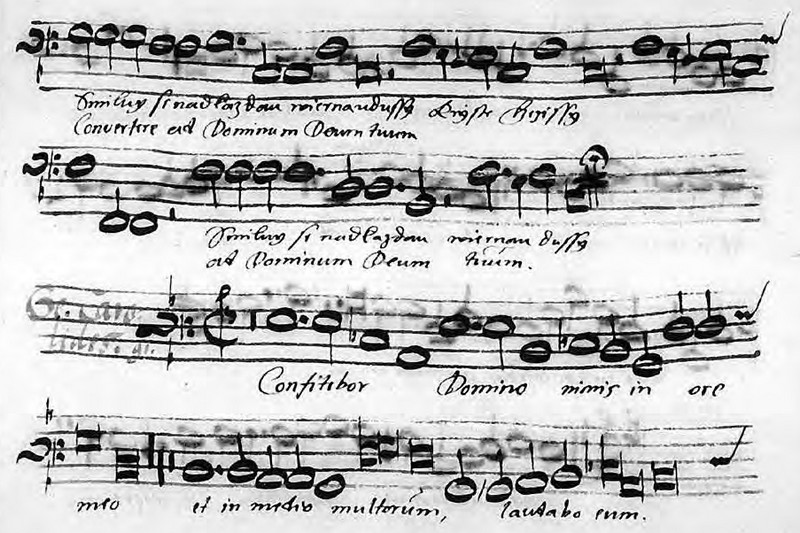 Smiluy se nad každau wiernau dussy Kryste
Convertere ad Dominum Deum tuum
Smiluy se nad každau wiernau dussy
ad Dominum Deum tuum.
Confitebor Domino nimis in ore
meo et in medio multorum, laudabo eum.